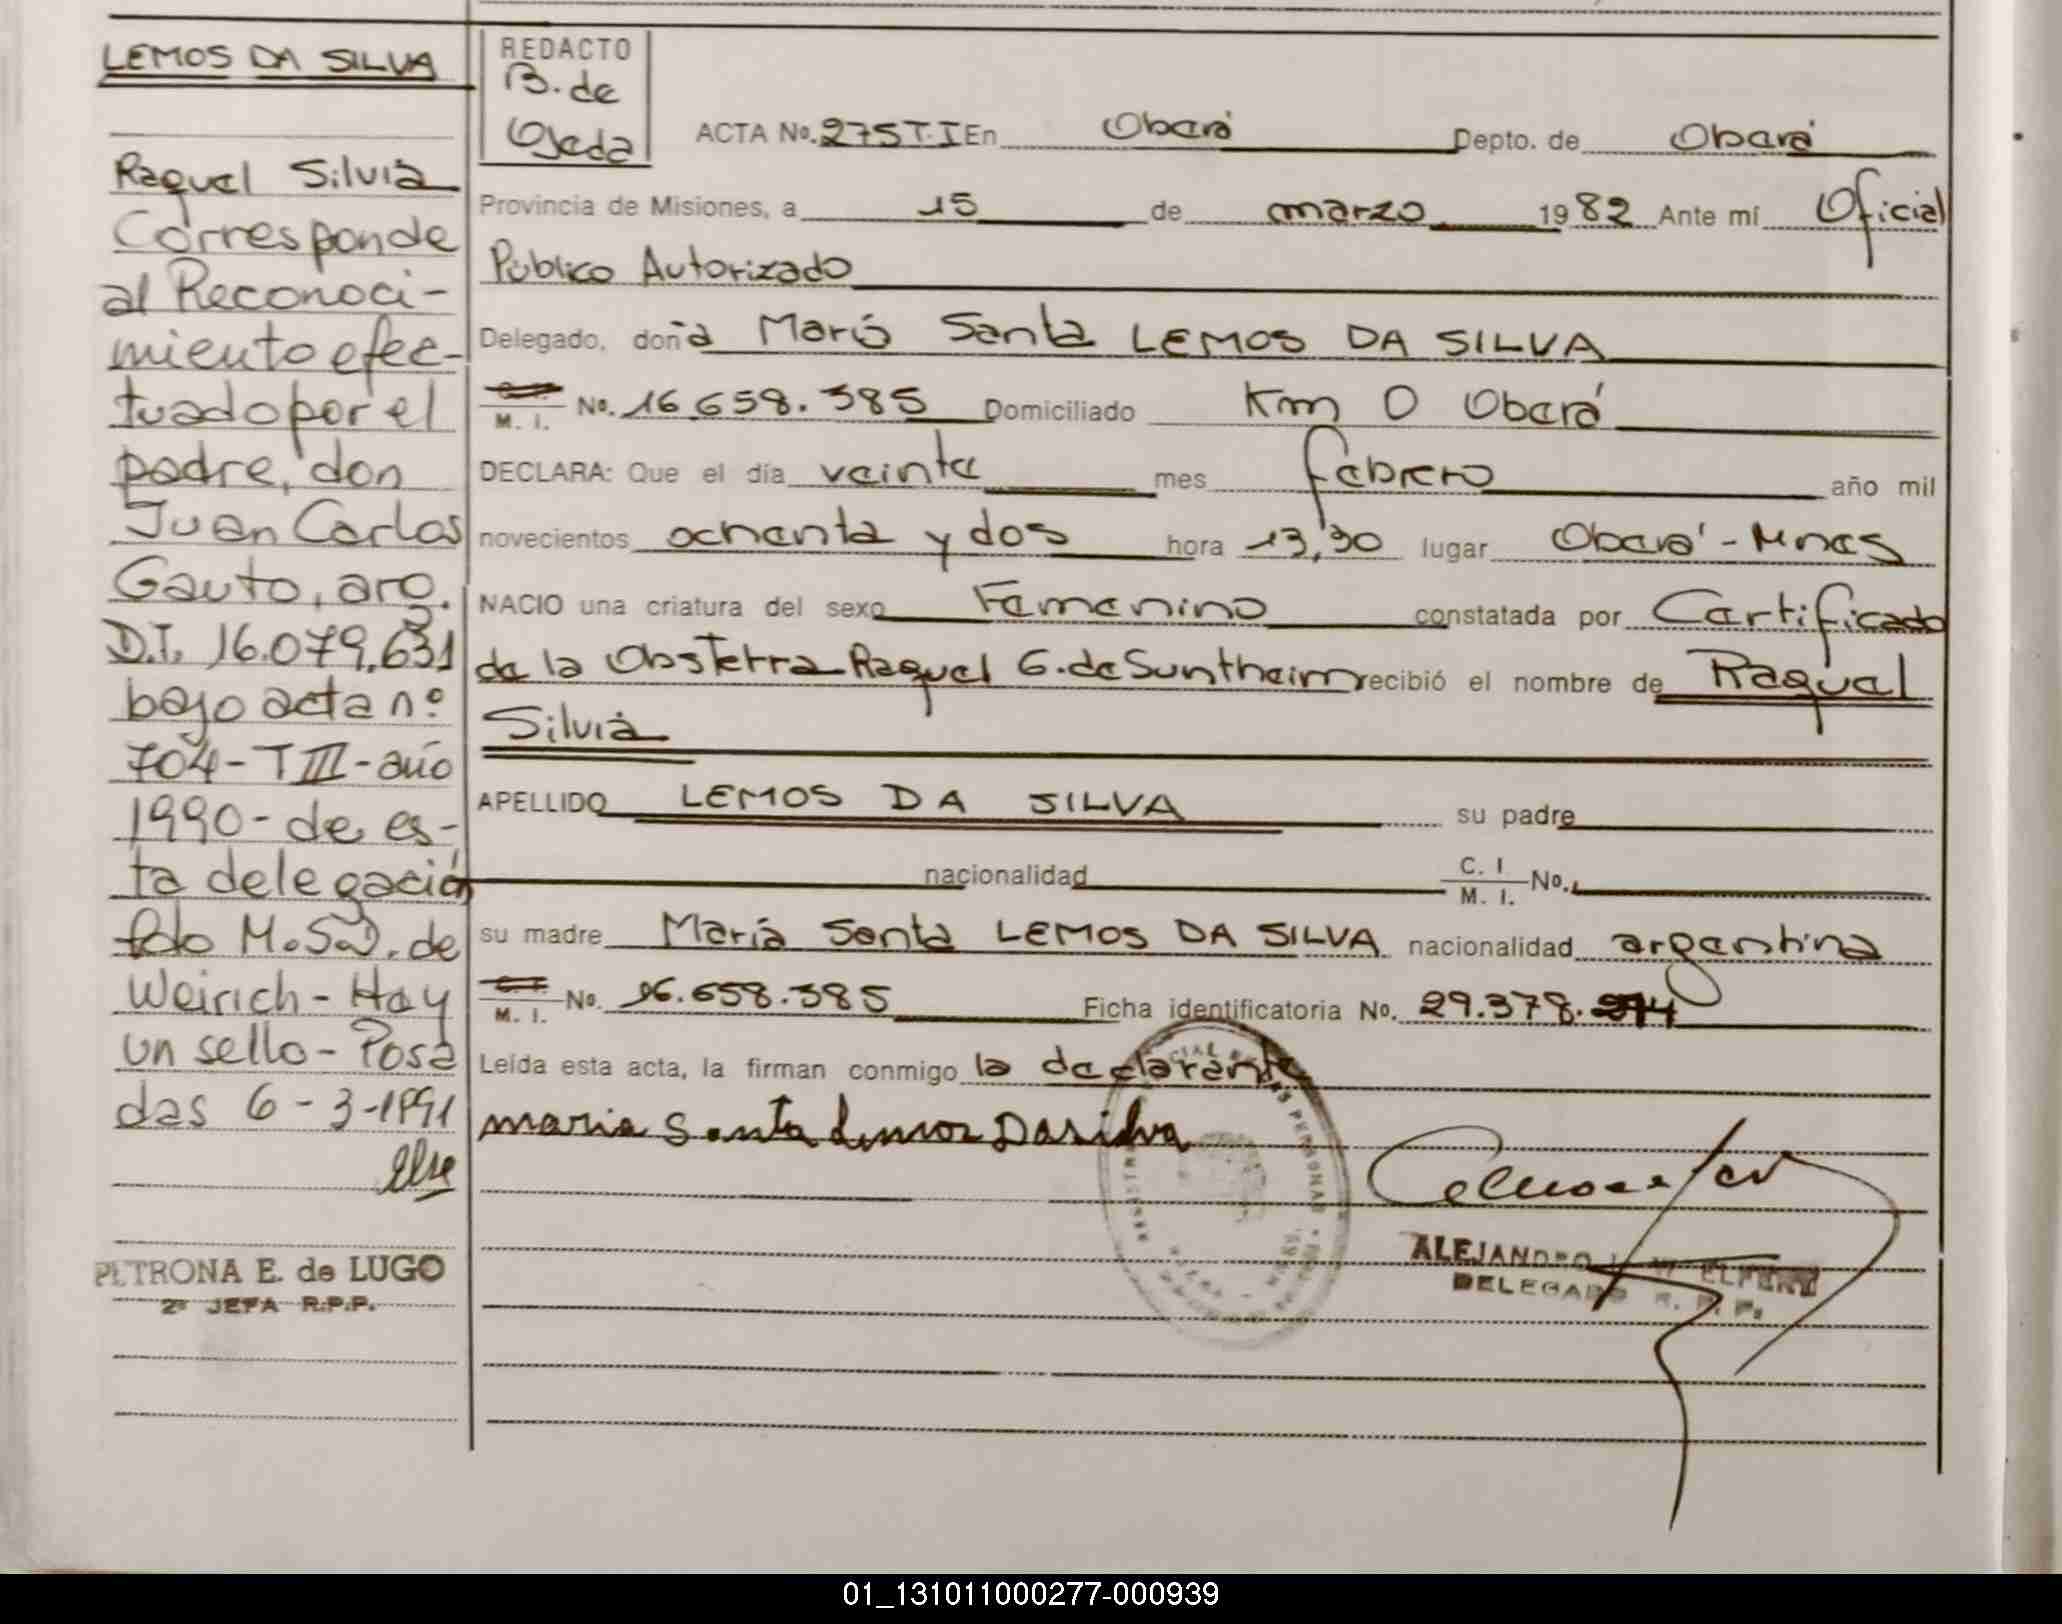 LEMOS DA SILVA
Raquel Silvia
Corresponde
al Reconoci-
miento efec-
tuado por el
padre, don
Juan Carlos
Gauto, arg.
D.I. 16.079.631
bajo acta nº
704 - T III - año
1990 - de es-
ta delegación
fdo M.S.D. de
Weirich - Hay
un sello - Posa
das 6 - 3 - 1991
PETRONA E. de LUGO
2ª JEFA R.P.P.
REDACTO
B. de
Ojeda
ACTA No. 275 T.I En Oberá Depto. de Oberá
Provincia de Misiones, a 15 de marzo 1982 Ante mí Oficial
Público Autorizado
Delegado, doña María Santa LEMOS DA SILVA
M. I. No. 16 658.385 Domiciliado Km 0 Oberá
DECLARA: Que el día veinte mes febrero año mil
novecientos ochenta y dos hora 13,30 lugar Oberá - Mnes
NACIO una criatura del sexo Femenino constatada por Certificado
de la Obstetra Raquel G. de Suntheim recibió el nombre de Raquel
Silvia
APELLIDO LEMOS DA SILVA su padre
nacionalidad C. I. M. I. No.
su madre María Santa LEMOS DA SILVA nacionalidad argentina
M. I. No. 16.658.385 Ficha identificatoria No. 29.378.
Leída esta acta, la firman conmigo la declarante
maria Santa Lemos Dasilva
ALEJANDRO
DELEGADO R. P. P.
01_131011000277-000939